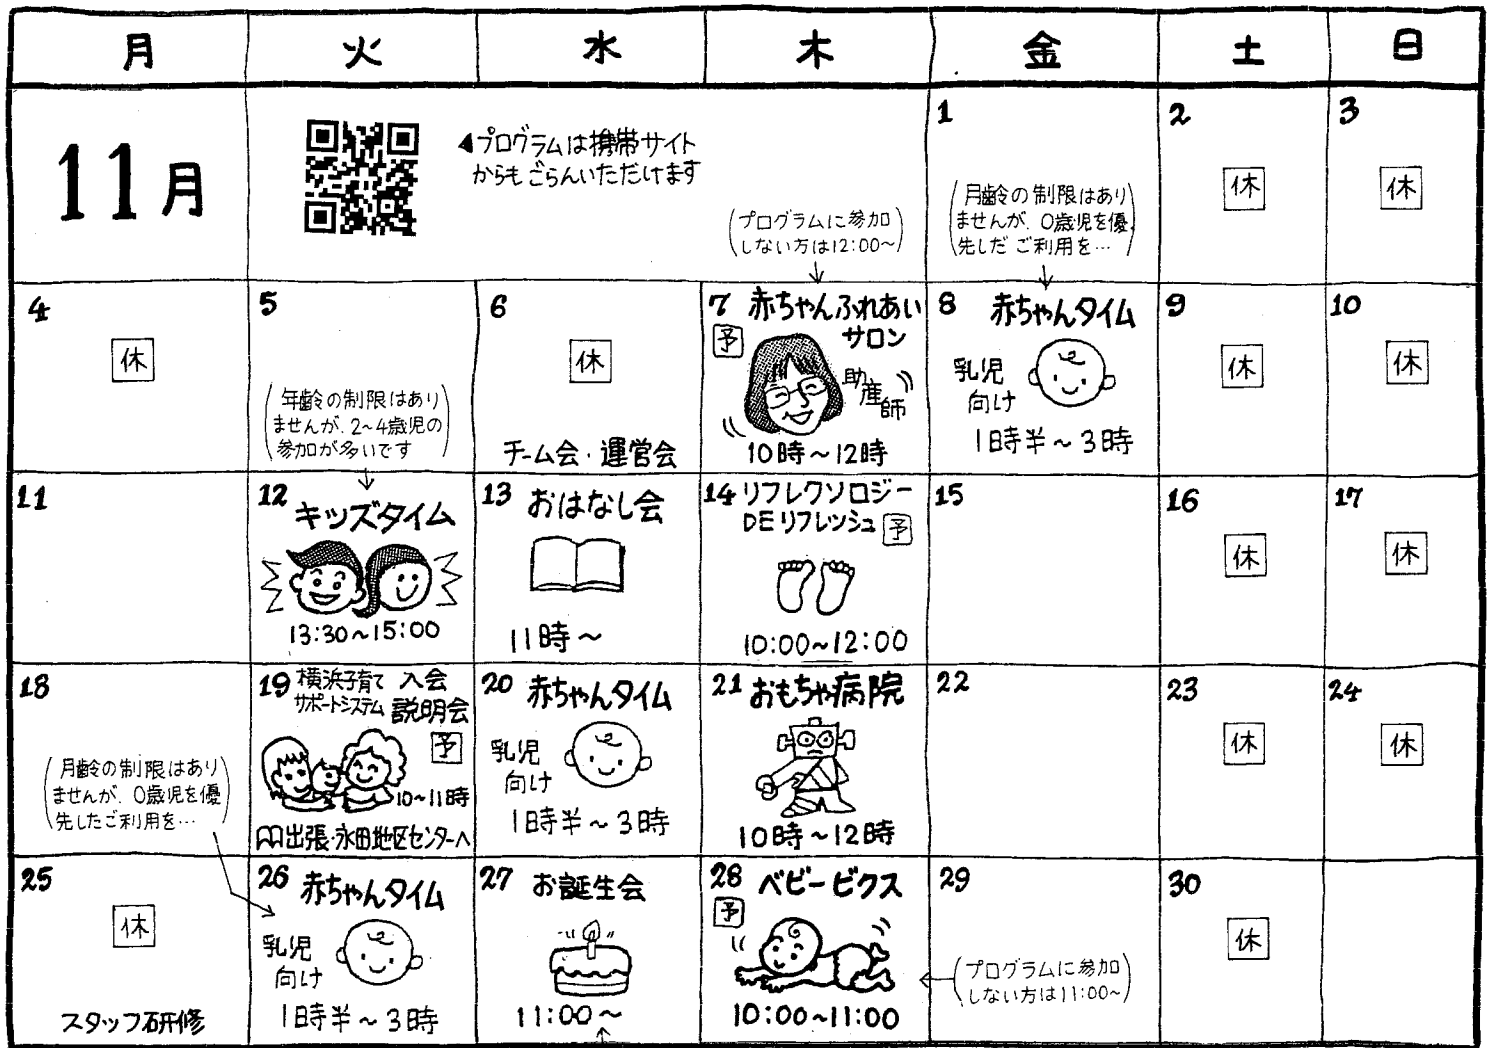 月 火 水 木 金 土 日
11月
◀プログラムは携帯サイト
からもごらんいただけます
(プログラムに参加
しない方は12:00~)
1
(月齢の制限はあり
ませんが、0歳児を優
先しだご利用を…)
2
休
3
休
4
休
5
(年齢の制限はあり
ませんが、2~4歳児の
参加が多いです)
6
休
チーム会・運営会
7 赤ちゃんふれあい
予 サロン
助産師
10時~12時
8 赤ちゃんタイム
乳児
向け
1時半~3時
9
休
10
休
11
12 キッズタイム
13:30~15:00
13 おはなし会
11時~
14 リフレクソロジー
DEリフレッシュ 予
10:00~12:00
15
16
休
17
休
18
(月齢の制限はあり
ませんが、0歳児を優
先したご利用を…)
19 横浜子育て 入会
サポートシステム 説明会
予
10~11時
出張・永田地区センターへ
20 赤ちゃんタイム
乳児
向け
1時半~3時
21 おもちゃ病院
10時~12時
22
23
休
24
休
25
休
スタッフ研修
26 赤ちゃんタイム
乳児
向け
1時半~3時
27 お誕生会
11:00~
28 ベビービクス
予
10:00~11:00
29
(プログラムに参加
しない方は11:00~)
30
休